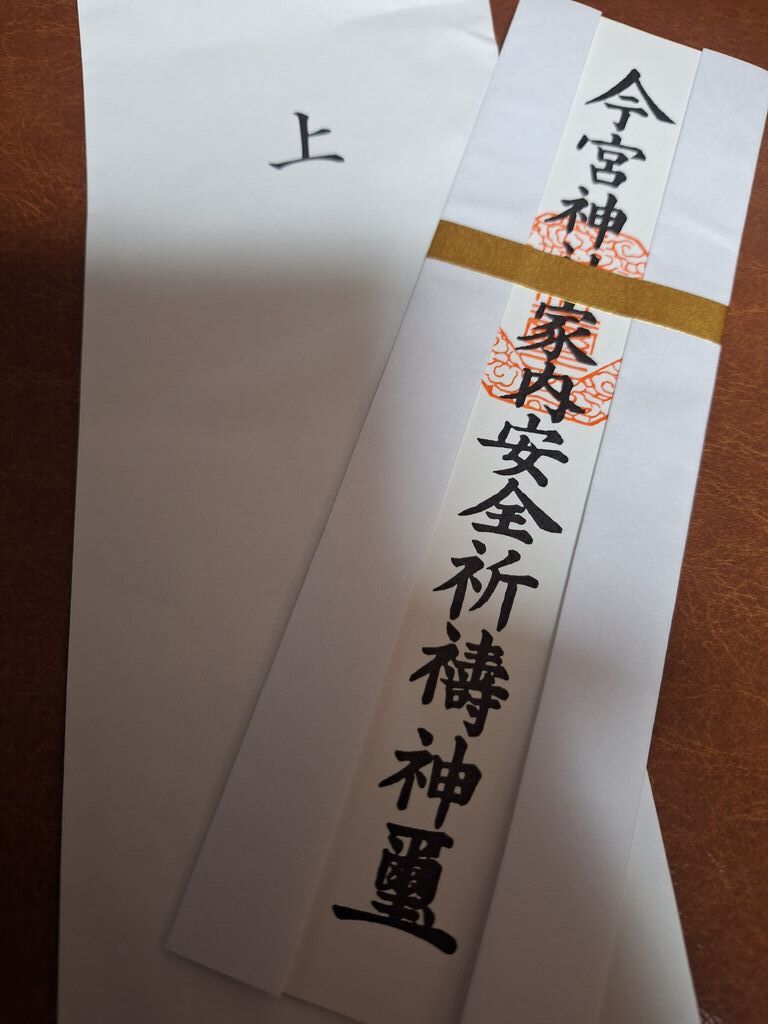 今宮神社家内安全祈禱神璽
上